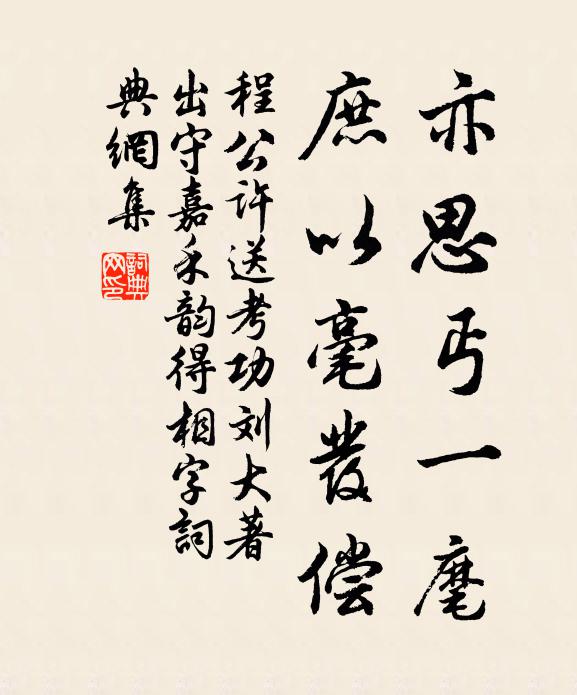 亦思丐一麾
庶以毫發偿
程公许送考功刘大著
出守嘉禾韵得相字詞
典網集
詞典网印